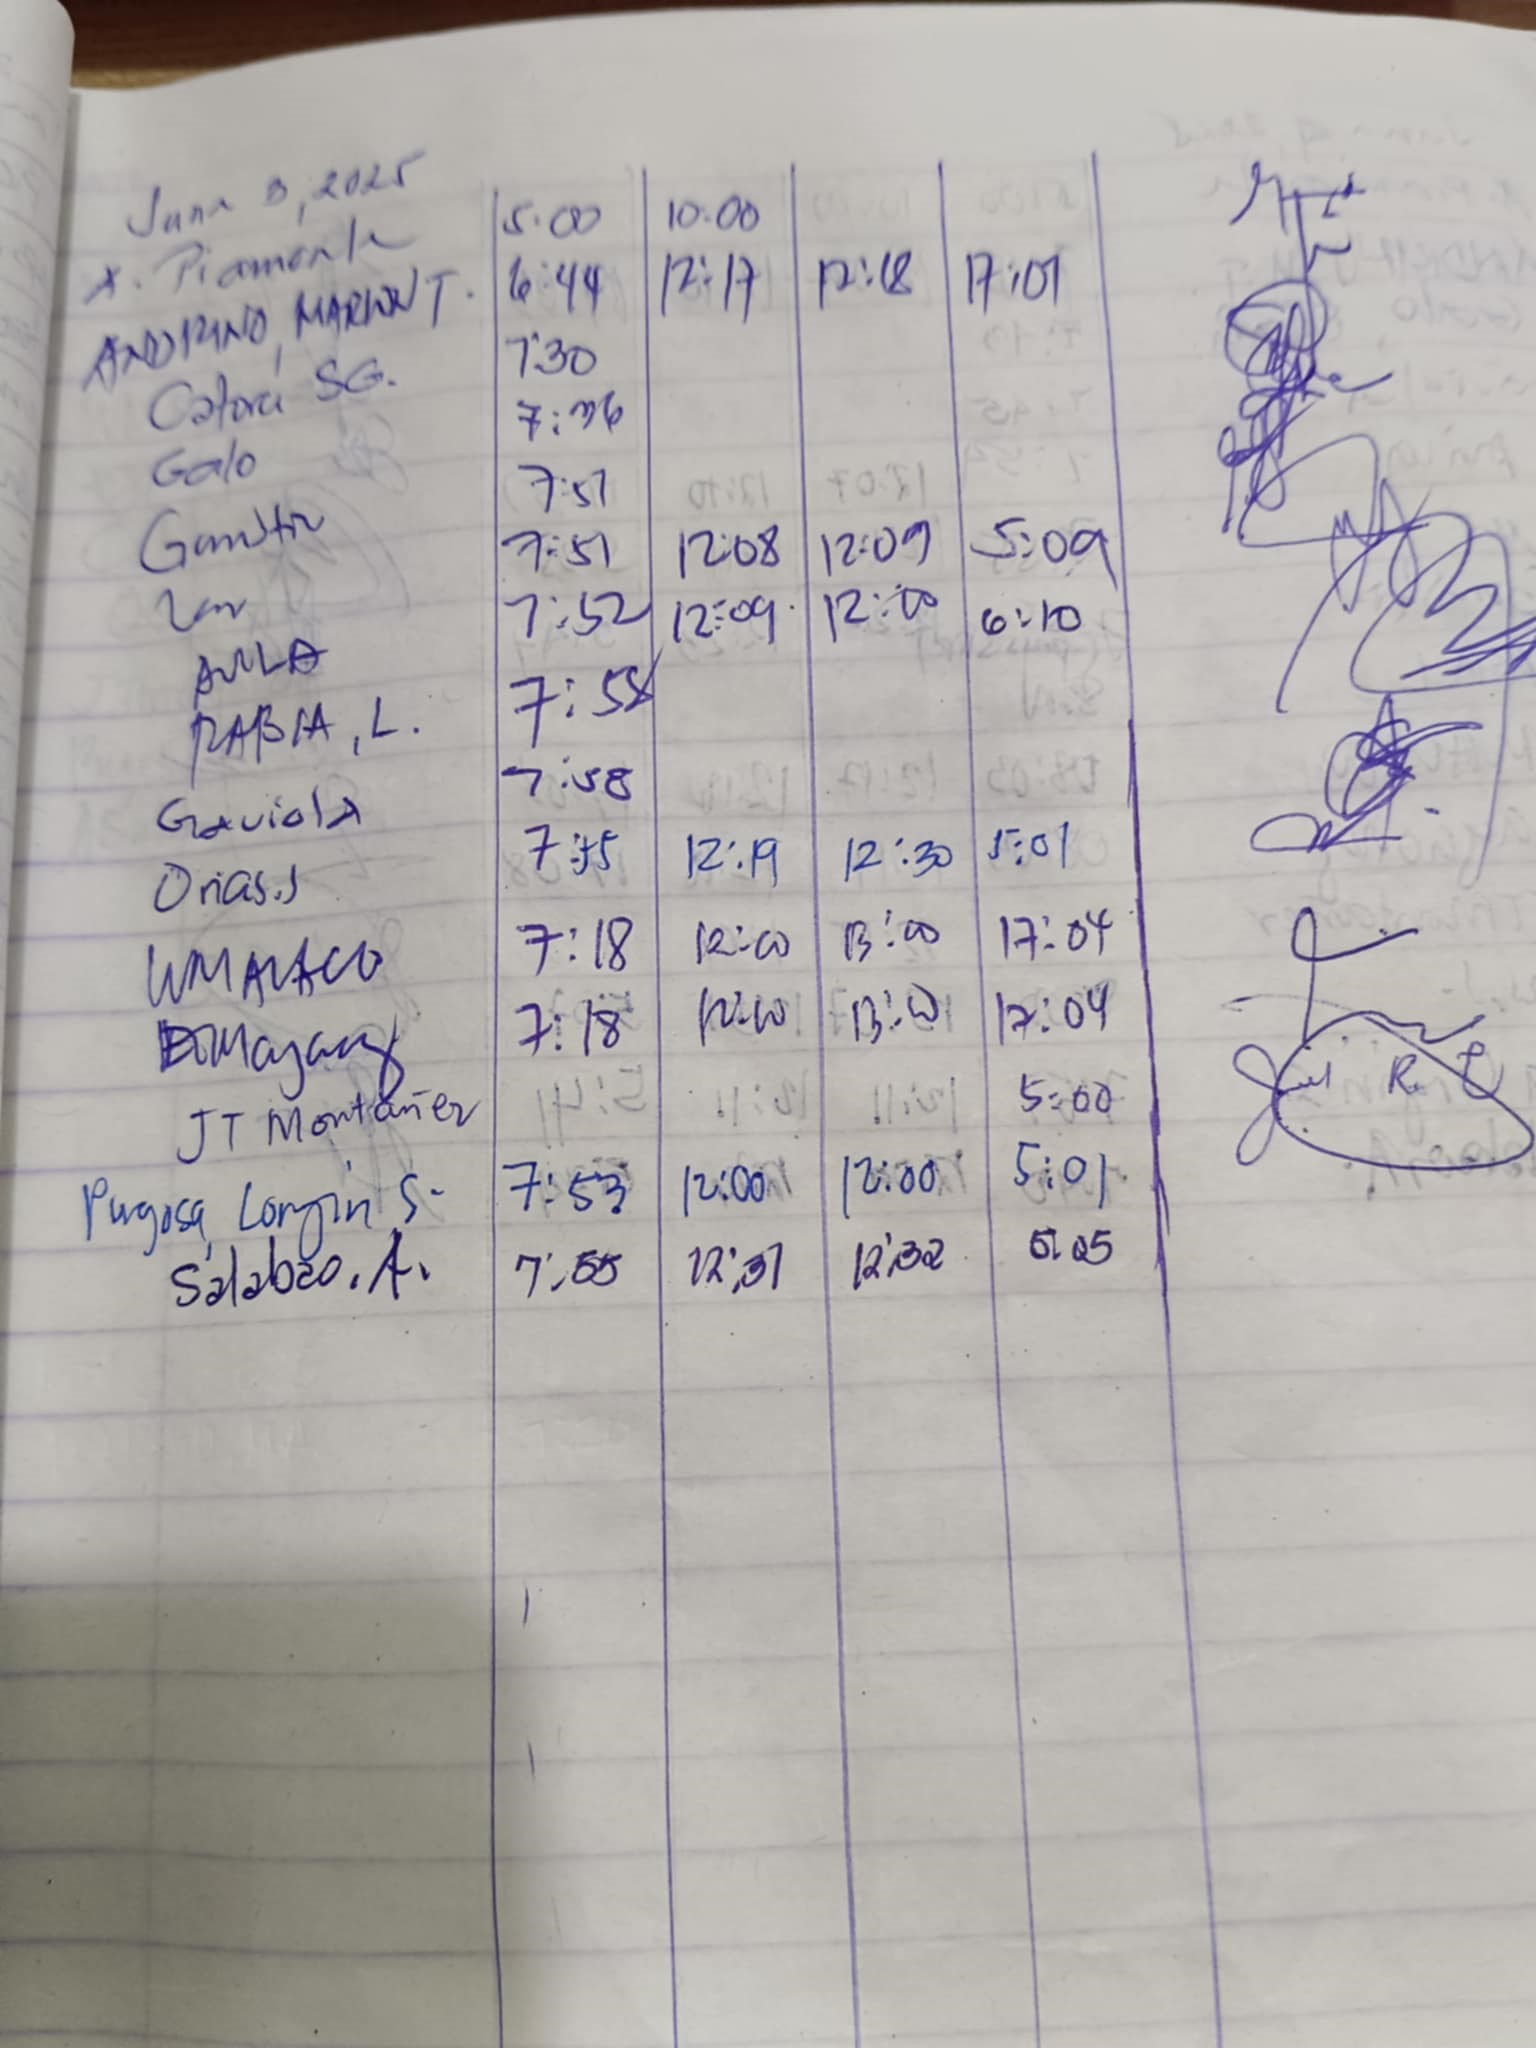 June 3, 2025
A. Piamonte 5:00 10:00
ANDRINO, MARION T. 6:44 12:17 12:18 17:01
Catori SG. 7:30
Galo 7:36
7:51
7:51 12:08 12:09 5:09
AVILA 7:52 12:09 12:00 6:10
RABIA, L. 7:58
Gaviola 7:58
Orias.J 7:55 12:19 12:30 5:01
7:18 12:00 13:00 17:04
7:18 12:00 13:00 17:04
JT Montañer 5:00
Pugosa, Longin S. 7:53 12:00 12:00 5:01
Salabao. A. 7:55 12:31 12:32 5:05